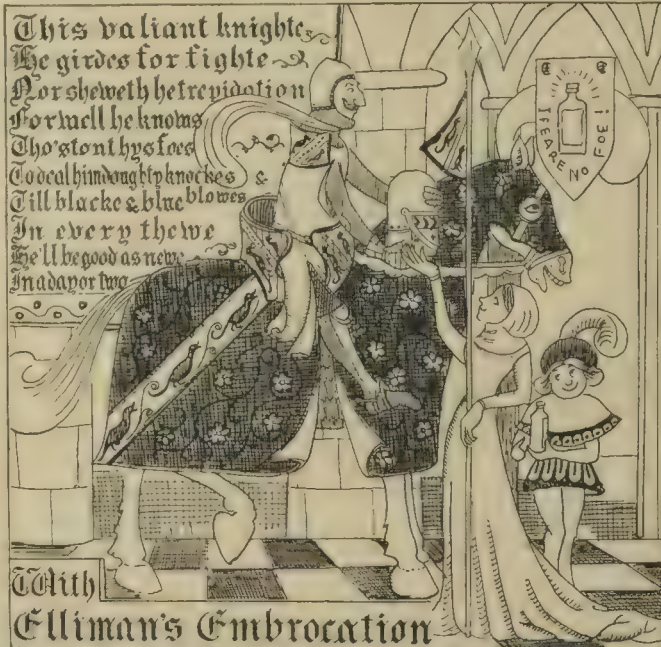 This valiant knighte
He girdes for fighte
Nor sheweth he trepidation
For well he knows
Tho' stout hys foes
To deal him doughty knockes & blowes
Till blacke & blue
In every thewe
He'll be good as newe
In a day or two
With
Elliman's Embrocation
I FEARE NO FOE !